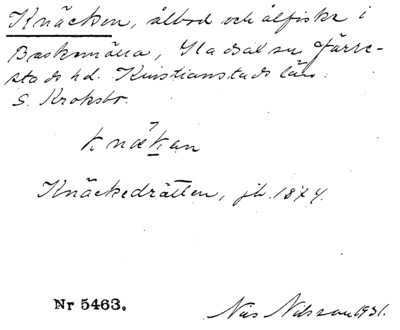 Knäcken, ålbod och ålfiske i
Baskemölla, Gladsax sn Järre-
stads hd. Kristianstads län.
S. Kroksbo.
knäkan
Knäckedrätten, jb. 1874.
Nr 5463.
Nils Nilsson 1931.